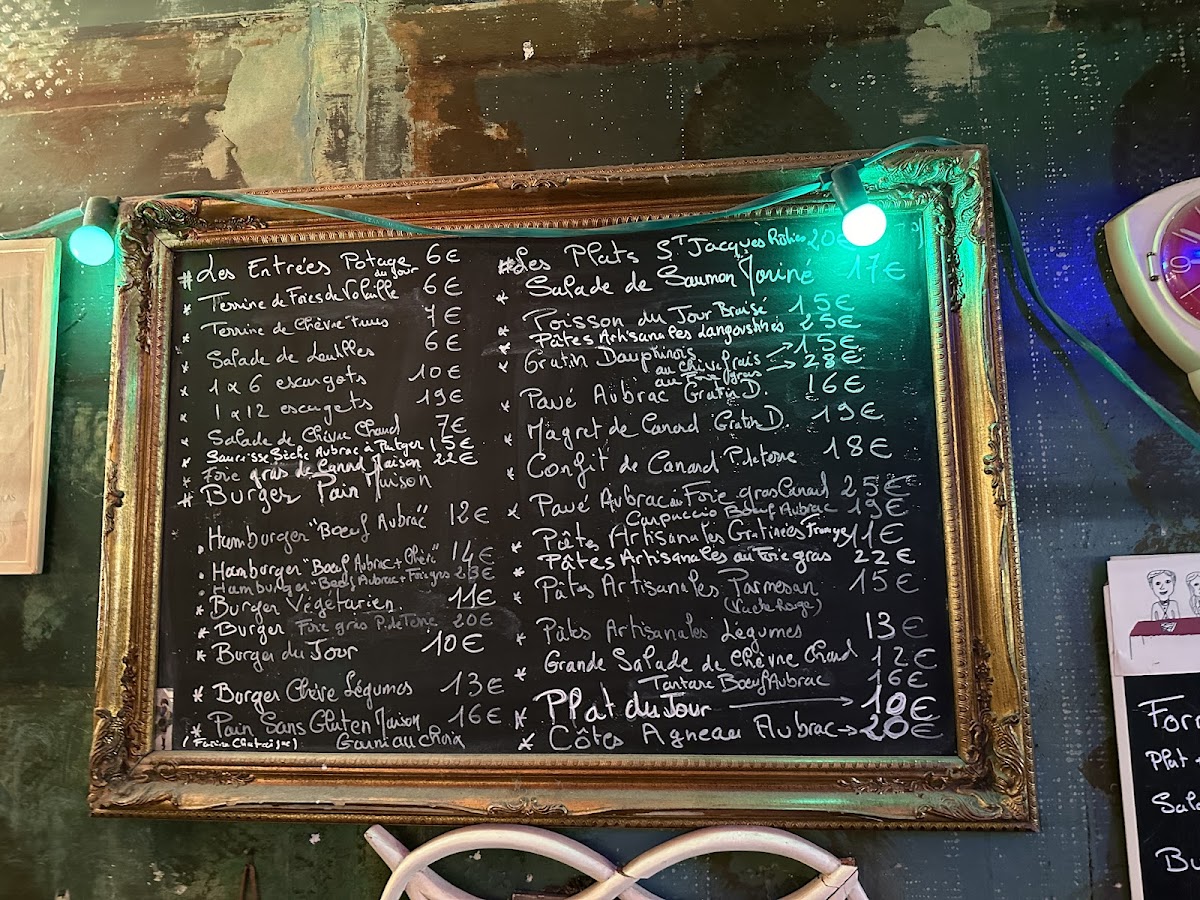 # Les Entrées Potage du Jour 6€
* Terrine de Foies de Volaille 6€
* Terrine de Chèvre 7€
* Salade de Lentilles 6€
* 1 x 6 escargots 10€
* 1 x 12 escargots 19€
* Salade de Chèvre Chaud 7€
* Saucisse Sèche Aubrac à Partager 15€
* Foie gras de Canard Maison 22€
# Burger Pain Maison
. Hamburger "Bœuf Aubrac" 12€
. Hamburger "Bœuf Aubrac + Chèvre" 14€
. Hamburger "Bœuf Aubrac + Foie gras 23€
* Burger Végétarien. 11€
* Burger Foie gras P. de Terre 20€
* Burger du Jour 10€
* Burger Chèvre Légumes 13€
* Pain Sans Gluten Maison 16€
Garni au Choix
# Les Plats St Jacques Rôties 20€
* Salade de Saumon Mariné 17€
* Poisson du Jour Braisé 15€
* Pâtes Artisanales Langoustines 25€
* Gratin Dauphinois au chèvre frais → 15€
au Foie gras → 28€
* Pavé Aubrac Gratin D. 16€
* Magret de Canard Gratin D. 19€
* Confit de Canard P. de terre 18€
* Pavé Aubrac au Foie gras Canard 25€
Carpaccio Bœuf Aubrac 19€
* Pâtes Artisanales Gratinées 11€
* Pâtes Artisanales au Foie gras 22€
* Pâtes Artisanales Parmesan 15€
(Vache Rouge)
* Pâtes Artisanales Légumes 13€
* Grande Salade de Chèvre Chaud 12€
Tartare Bœuf Aubrac 16€
* Plat du Jour → 10€
* Côtes Agneau Aubrac → 20€
Plat +